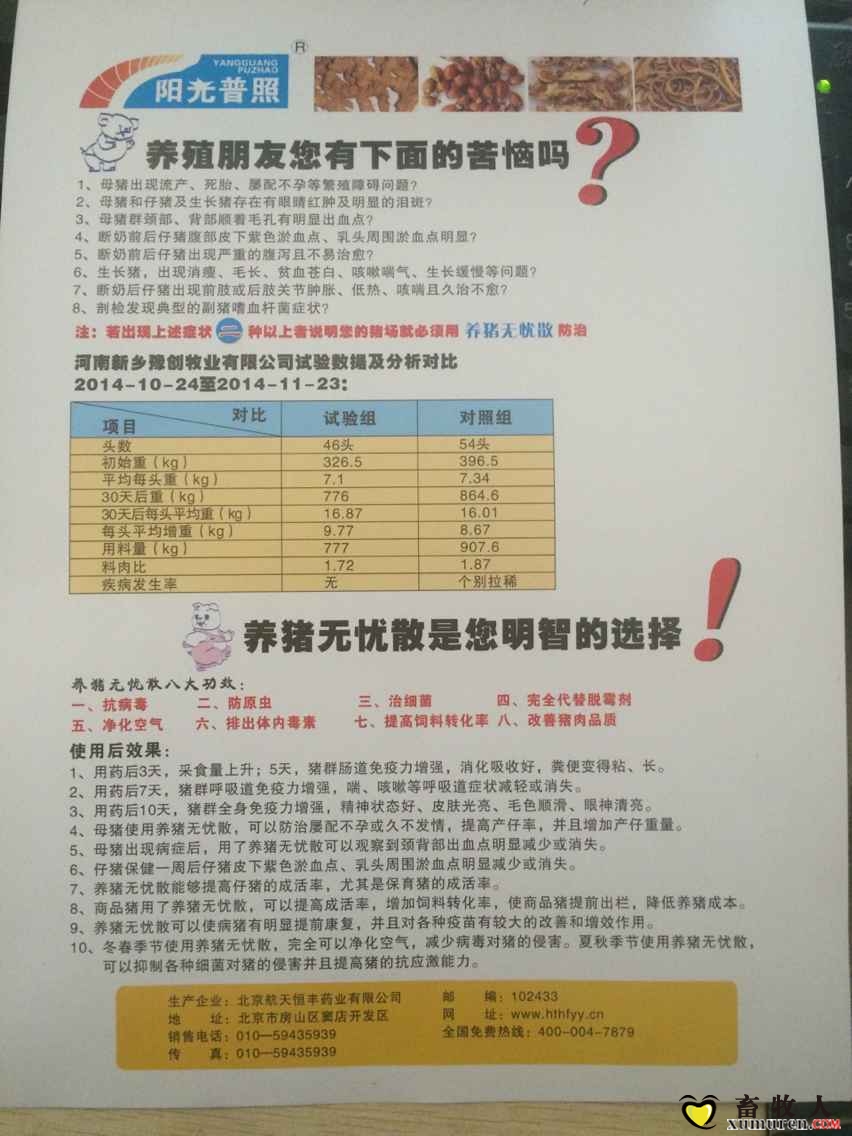 YANGGUANG
PUZHAO
阳光普照
®
养殖朋友您有下面的苦恼吗?
1、母猪出现流产、死胎、屡配不孕等繁殖障碍问题?
2、母猪和仔猪及生长猪存在有眼睛红肿及明显的泪斑?
3、母猪群颈部、背部顺着毛孔有明显出血点?
4、断奶前后仔猪腹部皮下紫色淤血点、乳头周围淤血点明显?
5、断奶前后仔猪出现严重的腹泻且不易治愈?
6、生长猪,出现消瘦、毛长、贫血苍白、咳嗽喘气、生长缓慢等问题?
7、断奶后仔猪出现前肢或后肢关节肿胀、低热、咳喘且久治不愈?
8、剖检发现典型的副猪嗜血杆菌症状?
注:若出现上述症状二种以上者说明您的猪场就必须用 养猪无忧散 防治
河南新乡豫创牧业有限公司试验数据及分析对比
2014-10-24至2014-11-23:
项目 对比 试验组 对照组
头数 46头 54头
初始重(kg) 326.5 396.5
平均每头重(kg) 7.1 7.34
30天后重(kg) 776 864.6
30天后每头平均重(kg) 16.87 16.01
每头平均增重(kg) 9.77 8.67
用料量(kg) 777 907.6
料肉比 1.72 1.87
疾病发生率 无 个别拉稀
养猪无忧散是您明智的选择!
养猪无忧散八大功效:
一、抗病毒 二、防原虫 三、治细菌 四、完全代替脱霉剂
五、净化空气 六、排出体内毒素 七、提高饲料转化率 八、改善猪肉品质
使用后效果:
1、用药后3天,采食量上升;5天,猪群肠道免疫力增强,消化吸收好,粪便变得粘、长。
2、用药后7天,猪群呼吸道免疫力增强,喘、咳嗽等呼吸道症状减轻或消失。
3、用药后10天,猪群全身免疫力增强,精神状态好、皮肤光亮、毛色顺滑、眼神清亮。
4、母猪使用养猪无忧散,可以防治屡配不孕或久不发情,提高产仔率,并且增加产仔重量。
5、母猪出现病症后,用了养猪无忧散可以观察到颈背部出血点明显减少或消失。
6、仔猪保健一周后仔猪皮下紫色淤血点、乳头周围淤血点明显减少或消失。
7、养猪无忧散能够提高仔猪的成活率,尤其是保育猪的成活率。
8、商品猪用了养猪无忧散,可以提高成活率,增加饲料转化率,使商品猪提前出栏,降低养猪成本。
9、养猪无忧散可以使病猪有明显提前康复,并且对各种疫苗有较大的改善和增效作用。
10、冬春季节使用养猪无忧散,完全可以净化空气,减少病毒对猪的侵害。夏秋季节使用养猪无忧散,
可以抑制各种细菌对猪的侵害并且提高猪的抗应激能力。
生产企业:北京航天恒丰药业有限公司 邮 编:102433
地 址:北京市房山区窦店开发区 网 址:www.hthfyy.cn
销售电话:010—59435939 全国免费热线:400-004-7879
传 真:010—59435939
畜牧人
xumuren.COM